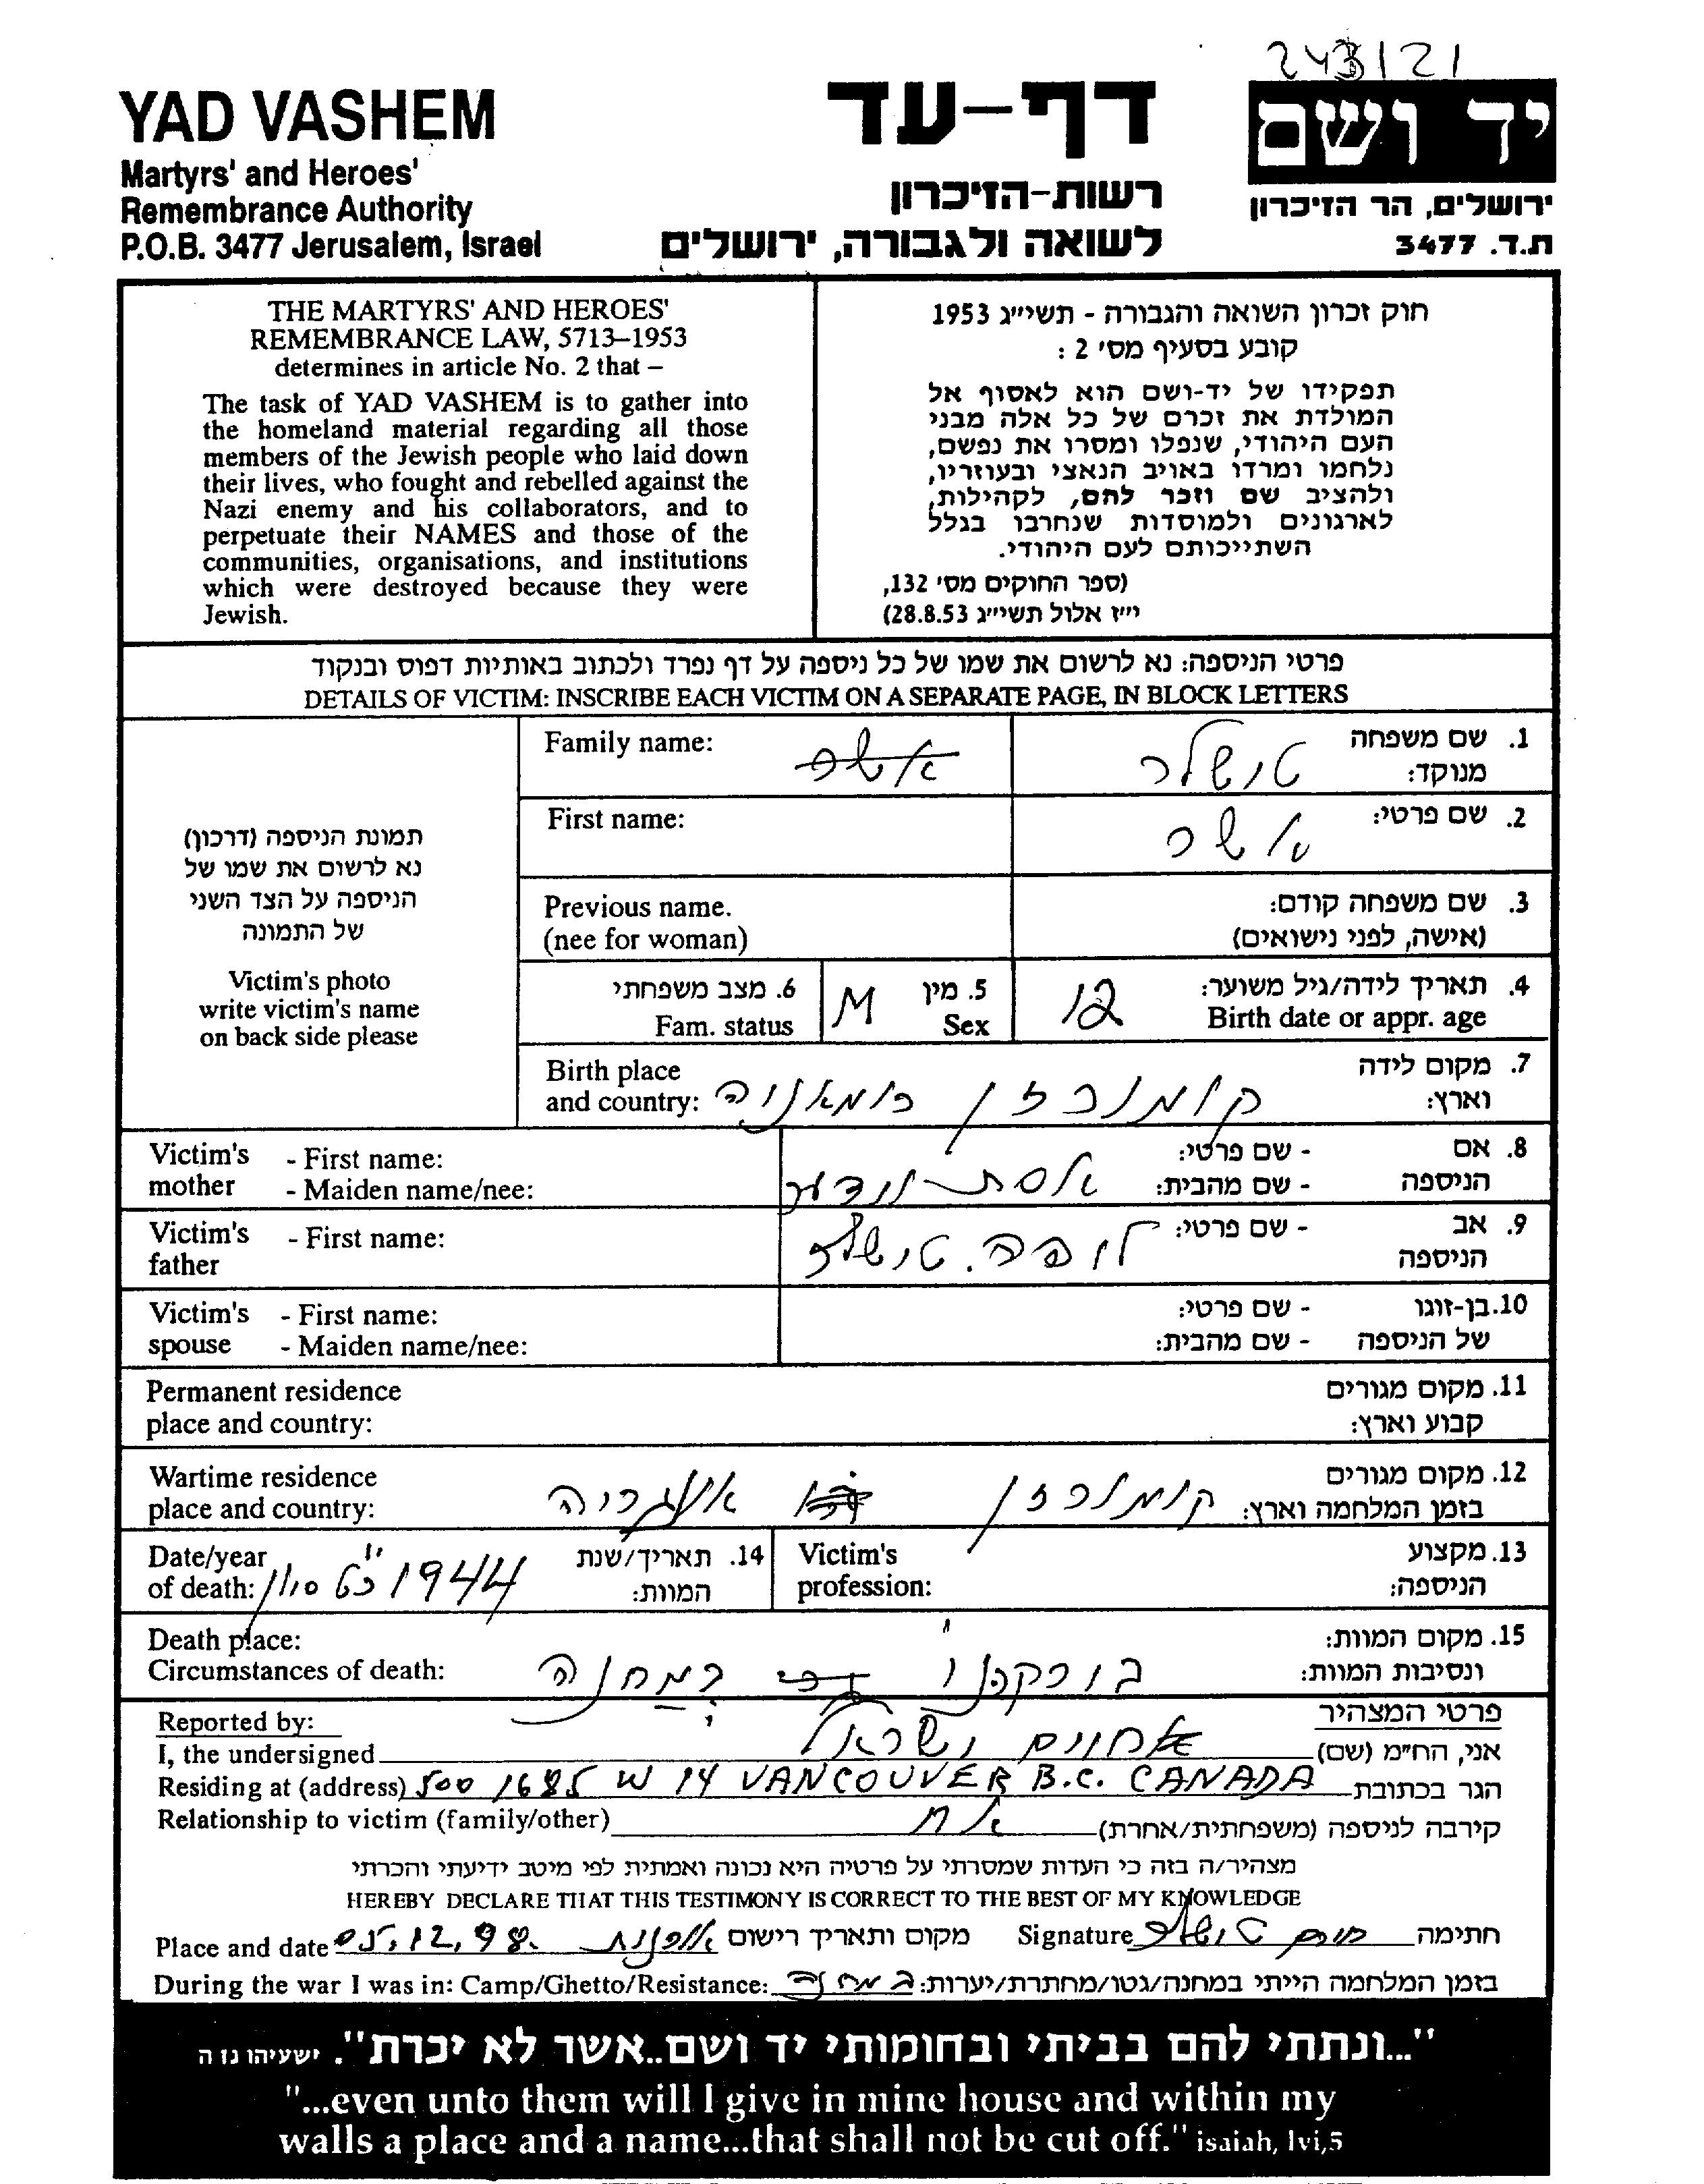 243121
YAD VASHEM
Martyrs' and Heroes'
Remembrance Authority
P.O.B. 3477 Jerusalem, Israel
דף-עד
רשות-הזיכרון
לשואה ולגבורה, ירושלים
יד ושם
ירושלים, הר הזיכרון
ת.ד. 3477
THE MARTYRS' AND HEROES'
REMEMBRANCE LAW, 5713–1953
determines in article No. 2 that –
The task of YAD VASHEM is to gather into
the homeland material regarding all those
members of the Jewish people who laid down
their lives, who fought and rebelled against the
Nazi enemy and his collaborators, and to
perpetuate their NAMES and those of the
communities, organisations, and institutions
which were destroyed because they were
Jewish.
חוק זכרון השואה והגבורה - תשי״ג 1953
קובע בסעיף מס׳ 2 :
תפקידו של יד-ושם הוא לאסוף אל
המולדת את זכרם של כל אלה מבני
העם היהודי, שנפלו ומסרו את נפשם,
נלחמו ומרדו באויב הנאצי ובעוזריו,
ולהציב שם וזכר להם, לקהילות,
לארגונים ולמוסדות שנחרבו בגלל
השתייכותם לעם היהודי.
(ספר החוקים מס׳ 132,
י״ז אלול תשי״ג 28.8.53)
פרטי הניספה: נא לרשום את שמו של כל ניספה על דף נפרד ולכתוב באותיות דפוס ובנקוד
DETAILS OF VICTIM: INSCRIBE EACH VICTIM ON A SEPARATE PAGE, IN BLOCK LETTERS
תמונת הניספה (דרכון)
נא לרשום את שמו של
הניספה על הצד השני
של התמונה
Victim's photo
write victim's name
on back side please
1. שם משפחה
מנוקד: טושלר Family name:
2. שם פרטי: אשר First name:
3. שם משפחה קודם: Previous name.
(אישה, לפני נישואים) (nee for woman)
4. תאריך לידה/גיל משוער: 12 5. מין M 6. מצב משפחתי
Birth date or appr. age Sex Fam. status
7. מקום לידה Birth place
וארץ: רומאניה and country:
8. אם - שם פרטי: Victim's - First name:
הניספה - שם מהבית: אסתר mother - Maiden name/nee:
9. אב - שם פרטי: Victim's - First name:
הניספה father
10. בן-זוגו - שם פרטי: Victim's - First name:
של הניספה - שם מהבית: spouse - Maiden name/nee:
11. מקום מגורים Permanent residence
קבוע וארץ: place and country:
12. מקום מגורים Wartime residence
בזמן המלחמה וארץ: place and country:
13. מקצוע Victim's
הניספה: profession:
14. תאריך/שנת Date/year
המוות: 1944 כ״ט סיון of death:
15. מקום המוות: Death place:
ונסיבות המוות: בירקנו במחנה Circumstances of death:
פרטי המצהיר Reported by:
אני, הח״מ (שם) ישראל I, the undersigned
הגר בכתובת Residing at (address) 500 1685 W 14 VANCOUVER B.C. CANADA
קירבה לניספה (משפחתית/אחרת) אח Relationship to victim (family/other)
מצהיר/ה בזה כי העדות שמסרתי על פרטיה היא נכונה ואמתית לפי מיטב ידיעתי והכרתי
HEREBY DECLARE THAT THIS TESTIMONY IS CORRECT TO THE BEST OF MY KNOWLEDGE
חתימה Signature מקום ותאריך רישום 05.12.98. Place and date
בזמן המלחמה הייתי במחנה/גטו/מחתרת/יערות: במחנה During the war I was in: Camp/Ghetto/Resistance:
"...ונתתי להם בביתי ובחומותי יד ושם..אשר לא יכרת". ישעיהו נו ה
"...even unto them will I give in mine house and within my
walls a place and a name...that shall not be cut off." isaiah, lvi,5